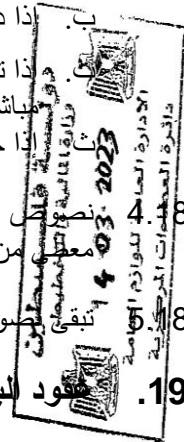 ب. إذا
ت. إذا
مباش
ث. إذا
18.4 نصوص
معطى من
18.5 تبقى نصو
19. عقود الب
دولة فلسطين
وزارة المالية والتخطيط
الادارة العامة للوازم العامة
دائرة العطاءات المركزية
14-03-2023